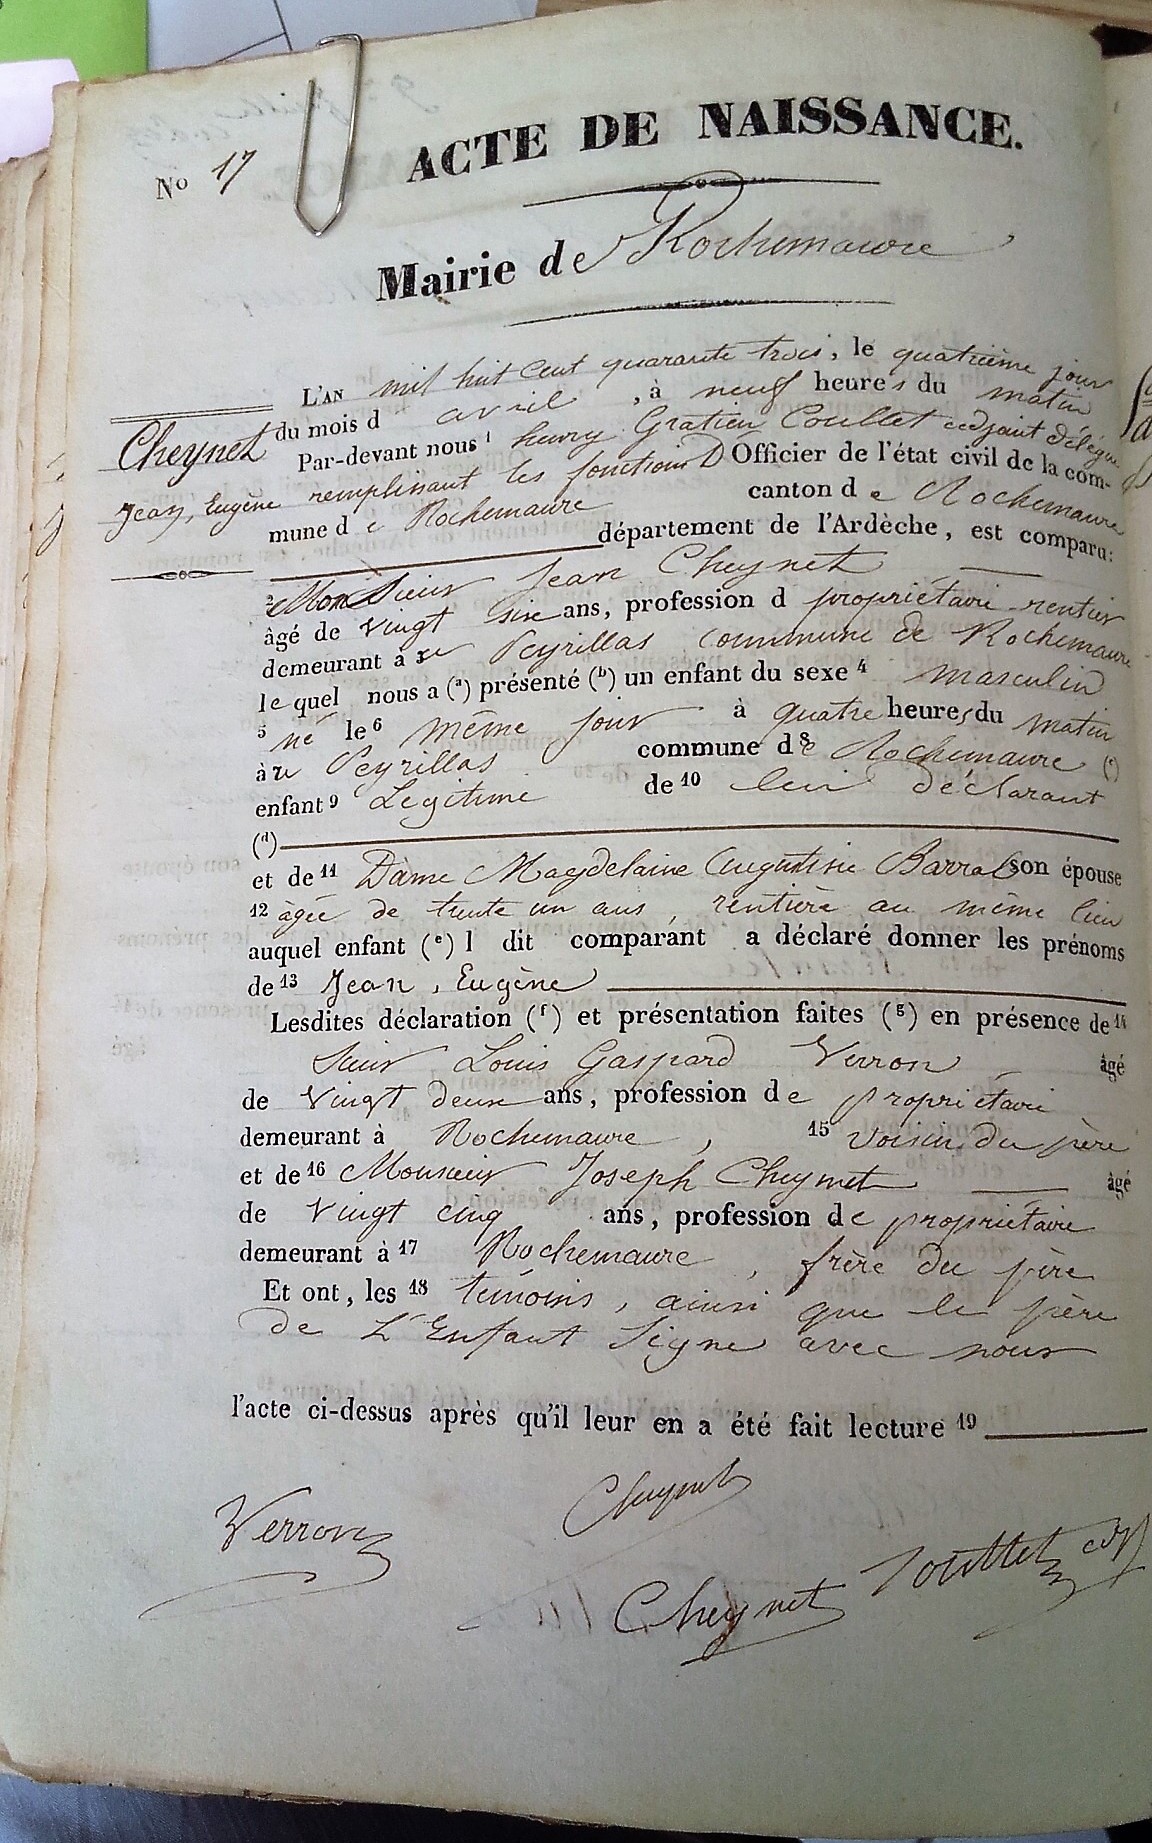 No 17
ACTE DE NAISSANCE.
Mairie de Rochemaure
L'AN mil huit cent quarante trois, le quatrième jour
du mois d avril, à neuf heures du matin
Par-devant nous 1 henry Gratien Coullet adjoint délégué
Cheynet
Jean, Eugène
remplissant les fonctions D Officier de l'état civil de la com-
mune de Rochemaure canton de Rochemaure
département de l'Ardèche, est comparu:
2 Monsieur Jean Cheynet
âgé de vingt six ans, profession d propriétaire rentier
demeurant à Peyrillas commune de Rochemaure
lequel nous a (a) présenté (b) un enfant du sexe 4 masculin
5 né le 6 même jour à quatre heures du matin
à Peyrillas commune d8e Rochemaure (c)
enfant 9 Légitime de 10 lui déclarant
(d)
et de 11 Dame Magdelaine Augustine Barral son épouse
12 âgée de trente un ans, rentière au même lieu
auquel enfant (e) l dit comparant a déclaré donner les prénoms
de 13 Jean, Eugène
Lesdites déclaration (f) et présentation faites (g) en présence de 14
Sieur Louis Gaspard Verron âgé
de vingt deux ans, profession de propriétaire
demeurant à Rochemaure, 15 voisin du père
et de 16 Monsieur Joseph Cheynet âgé
de vingt cinq ans, profession de propriétaire
demeurant à 17 Rochemaure, frère du père
Et ont, les 18 témoins, ainsi que le père
de L'Enfant Signé avec nous
l'acte ci-dessus après qu'il leur en a été fait lecture 19
Verron
Cheynet
Cheynet
Coullet adj